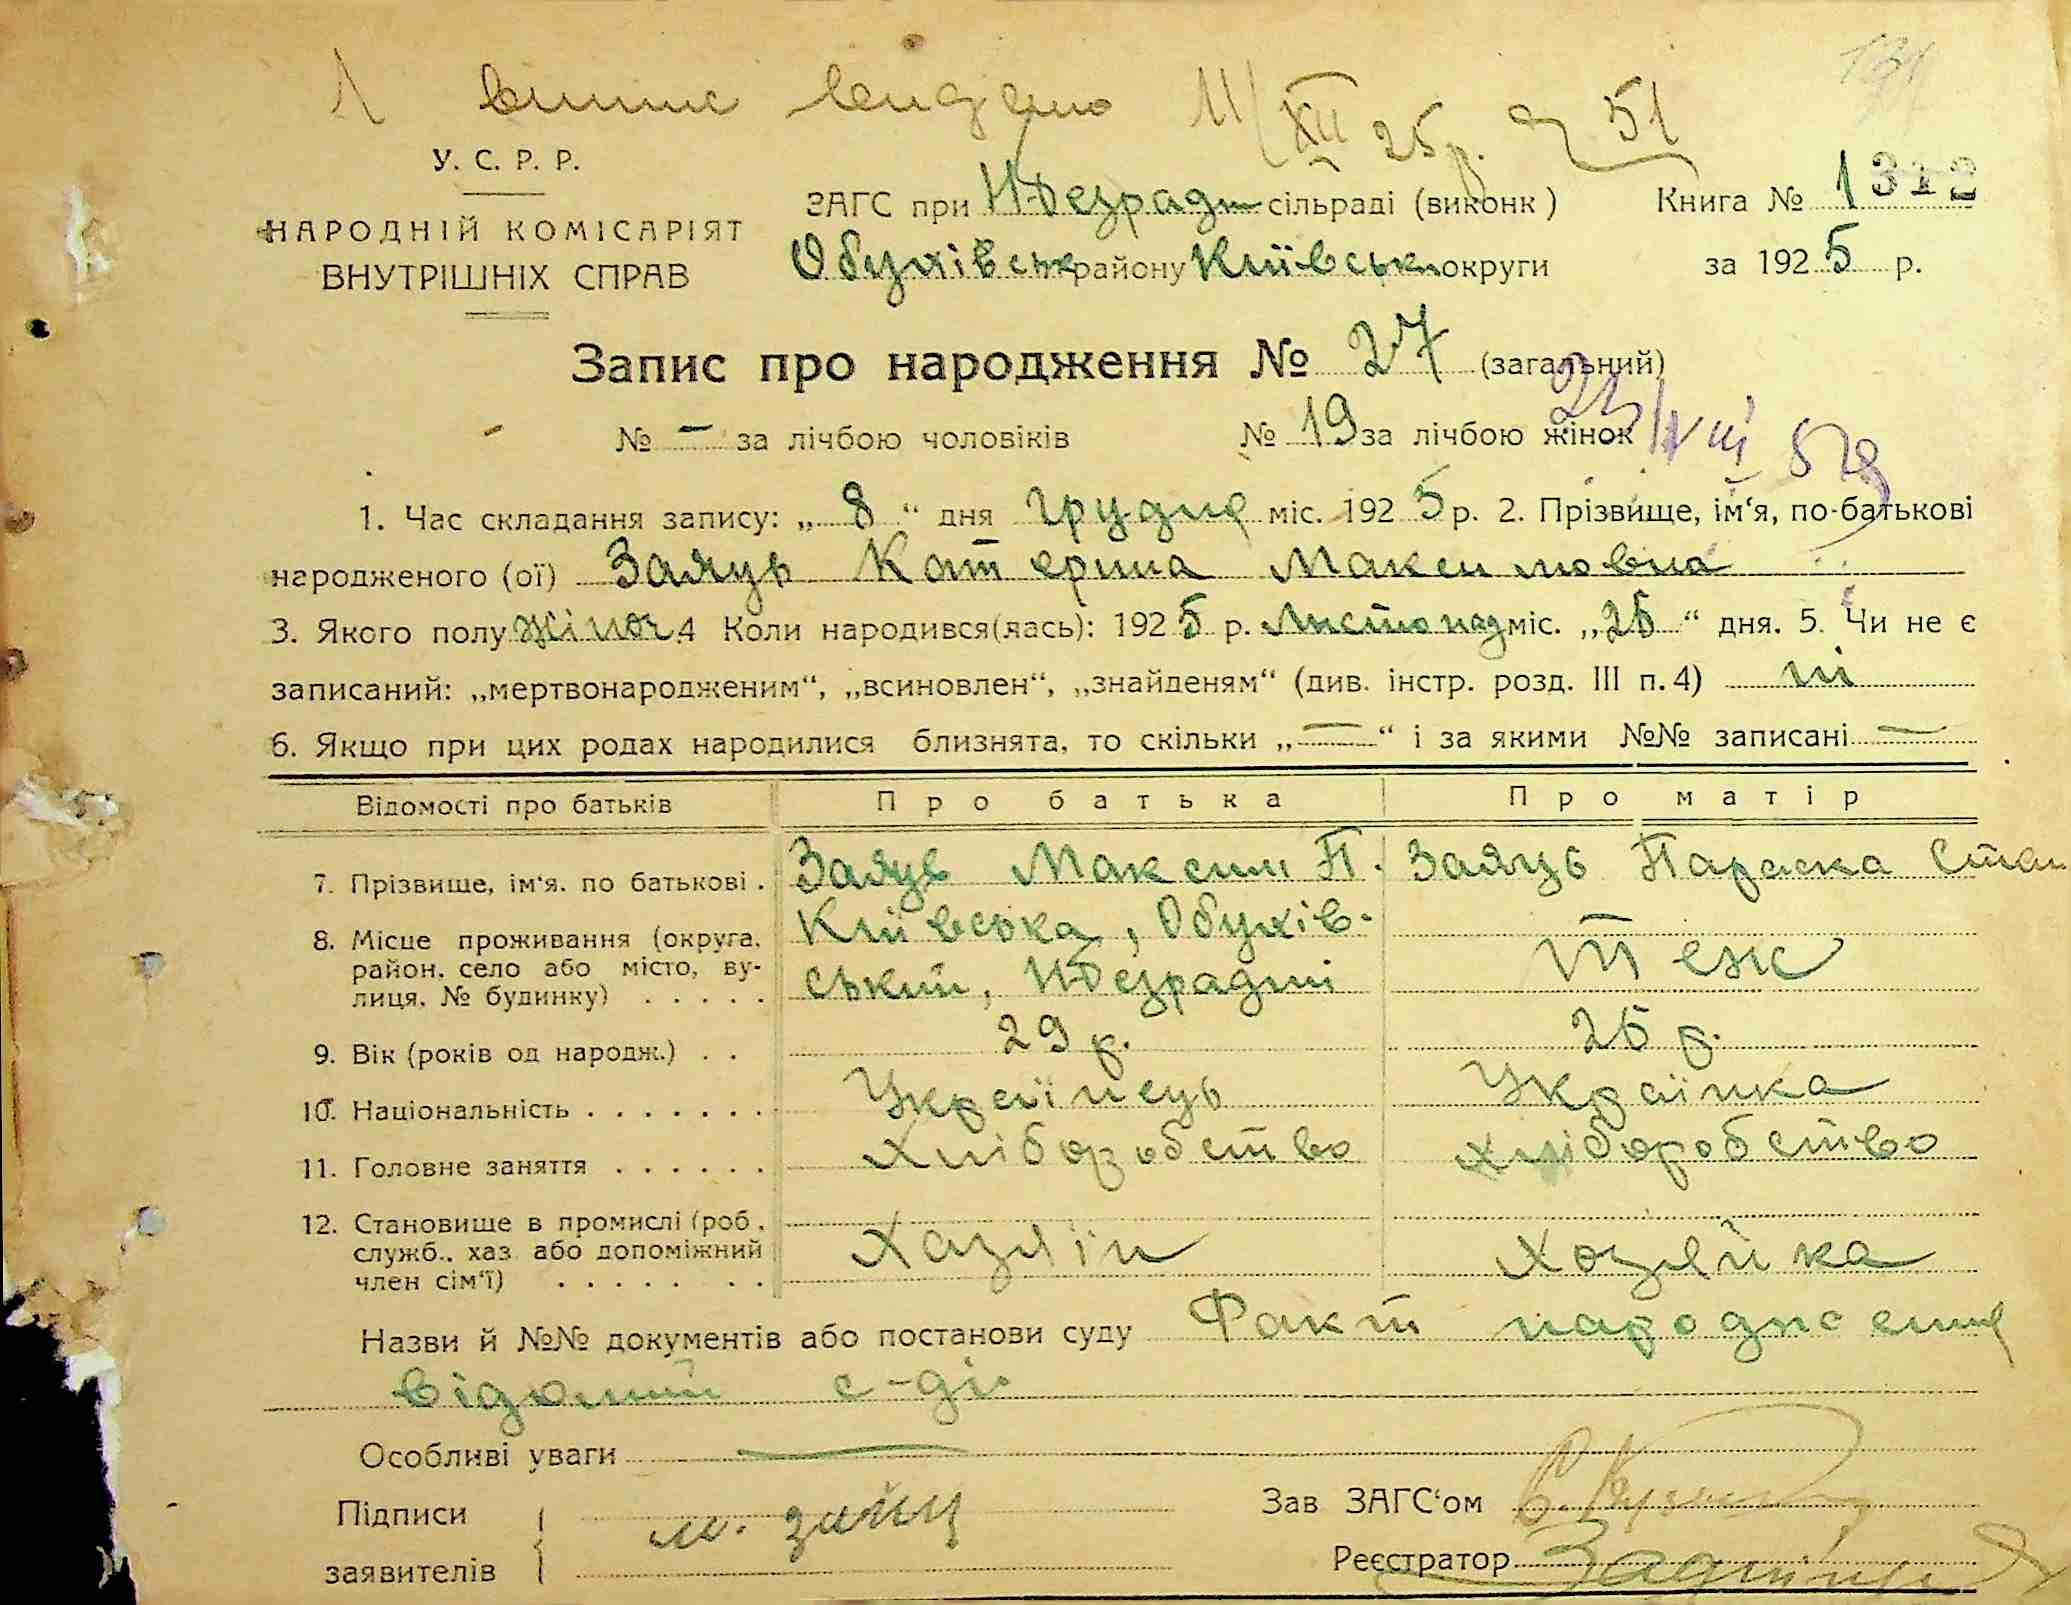 1 випис видано 11/XII 25 р. 51
У. С. Р. Р.
НАРОДНІЙ КОМІСАРІЯТ
ВНУТРІШНІХ СПРАВ
ЗАГС при Н-Безрадн сільраді (виконк)
Обухівськ району Київськ округи
Книга № 1 312
за 1925 р.
Запис про народження № 27 (загальний)
№ — за лічбою чоловіків № 19 за лічбою жінок
1. Час складання запису: „ 8 “ дня грудня міс. 1925 р. 2. Прізвище, ім‘я, по-батькові
народженого (ої) Заяць Катерина Максимовна
3. Якого полу жіноч. 4 Коли народився(лась): 1925 р. листопад міс. „25“ дня. 5. Чи не є
записаний: „мертвонародженим“, „всиновлен“, „знайденям“ (див. інстр. розд. III п. 4) ні
6. Якщо при цих родах народилися близнята, то скільки „—“ і за якими №№ записані —
Відомості про батьків Про батька Про матір
7. Прізвище, ім‘я. по батькові . Заяць Максим П. Заяць Параска Степ
8. Місце проживання (округа, район. село або місто, ву-
лиця. № будинку) . . . . . Київська, Обухів-
ський, Н-Безрадні теж
9. Вік (років од народж.) . . 29 р. 25 р.
10. Національність . . . . . . . Українець Українка
11. Головне заняття . . . . . . Хліборобство хліборобство
12. Становище в промислі (роб.,
служб., хаз. або допоміжний
член сім‘ї) . . . . . . . Хазяїн Хозяйка
Назви й №№ документів або постанови суду Факт народження
відомий с-ді
Особливі уваги —
Підписи
заявителів
м. зайиц
Зав ЗАГС‘ом
Реєстратор